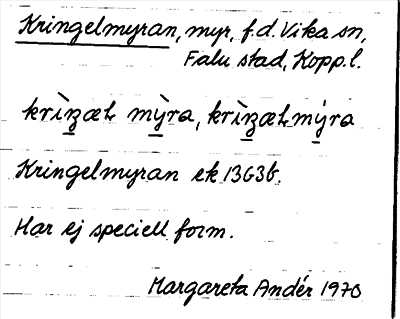 Kringelmyran, myr, f.d. Vika sn,
Falu stad, Kopp.l.
krìn̲zæƚ mỳ̲ra, krìn̲zæƚmý̲ra
Kringelmyran ek 13G3b.
Har ej speciell form.
Margareta Andér 1970